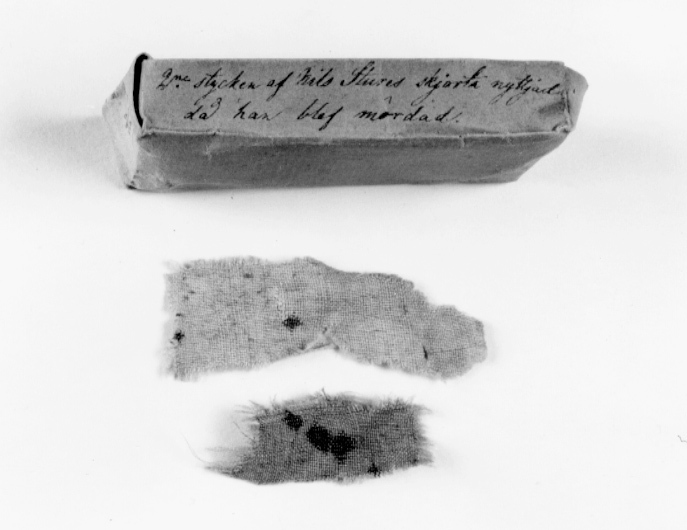 2ne stycken af Nils Stures skjorta nyttjad
då han blef mördad.